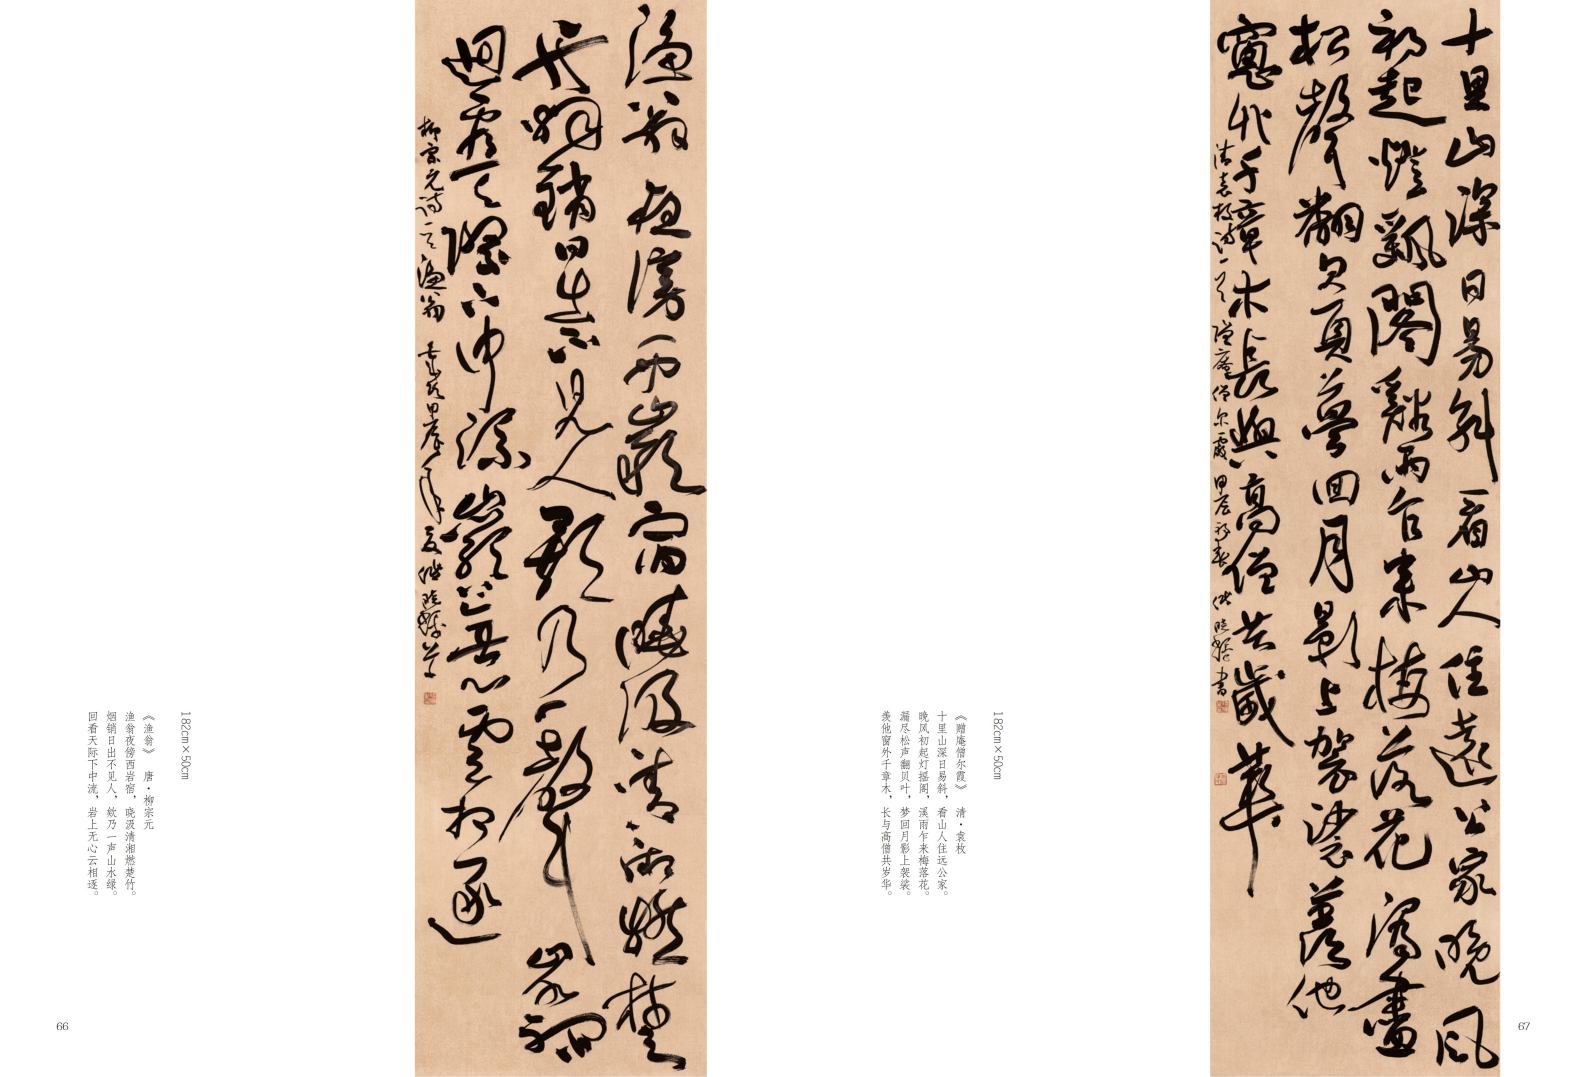 漁翁夜傍西巖宿曉汲清湘燃楚
竹烟銷日出不見人欸乃一聲山水綠
迴看天際下中流巖上無心雲相逐
柳宗元詩一首漁翁 歲次甲辰年夏
182cm×50cm
《渔翁》 唐·柳宗元
渔翁夜傍西岩宿，晓汲清湘燃楚竹。
烟销日出不见人，欸乃一声山水绿。
回看天际下中流，岩上无心云相逐。
66
十里山深日易斜看山人住遠公家晚風
初起燈飄閣谿雨乍來梅落花漏盡
松聲翻貝葉夢回月影上袈裟羨他
窻外千章木長與高僧共歲華
清袁枚詩一首 贈庵僧尔霞 甲辰初春 書
182cm×50cm
《赠庵僧尔霞》 清·袁枚
十里山深日易斜，看山人住远公家。
晚风初起灯摇阁，溪雨乍来梅落花。
漏尽松声翻贝叶，梦回月影上袈裟。
羡他窗外千章木，长与高僧共岁华。
67